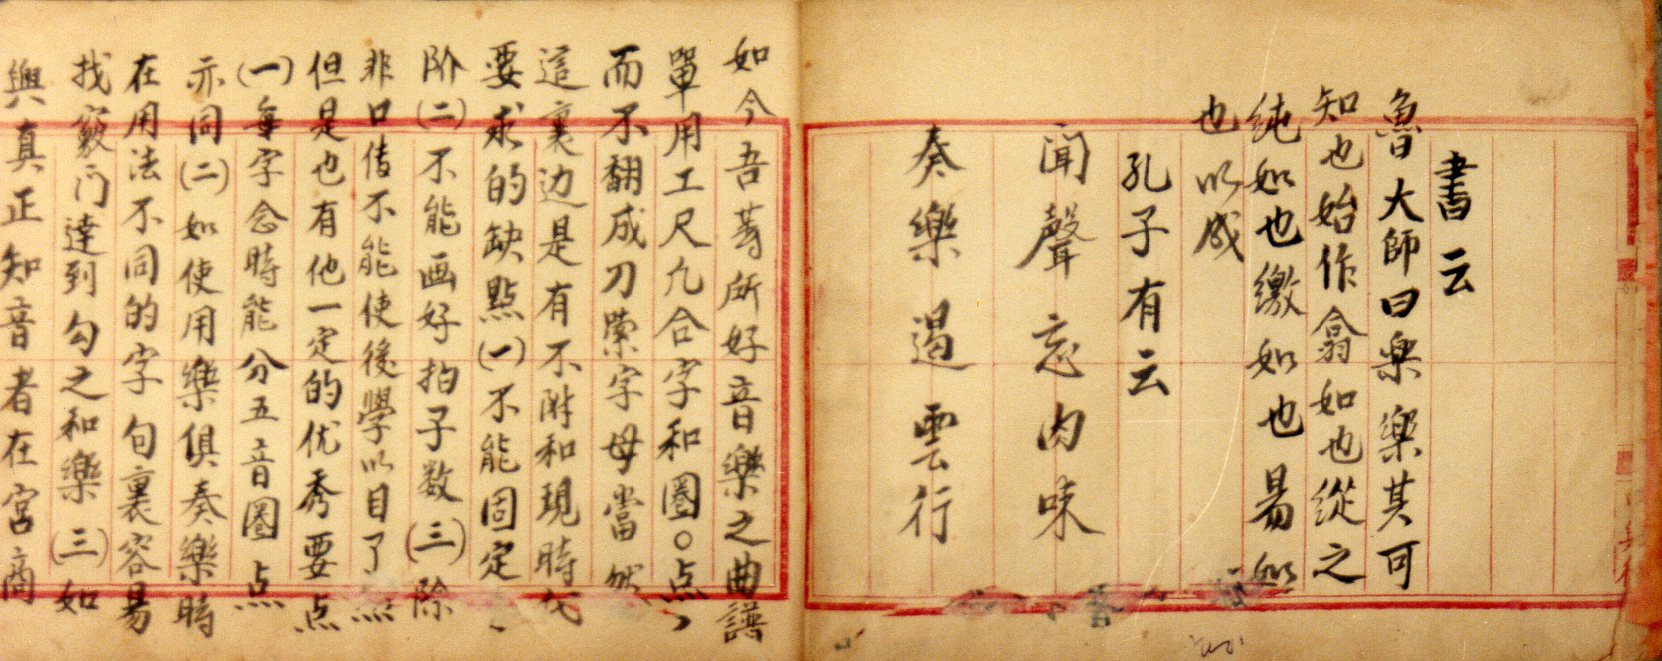 書云
魯大師曰乐樂其可
知也始作翕如也從之
純如也缴如也易如
也以成
孔子有云
聞聲忘肉味
奏樂遏雲行
如今吾等所好音樂之曲譜
單用工尺凡合字和圈○点、
而不翻成刀嗦字母當然
這裏边是有不附和現時代
要求的缺點(一)不能固定、
阶(二)不能画好拍子数(三)除
非口传不能使後學以目了然
但是也有他一定的优秀要点、
(一)每字念時能分五音圈点
亦同(二)如使用樂俱奏樂時
在用法不同的字句裏容易
找竅门達到勾之和樂(三)如
與真正知音者在宮商